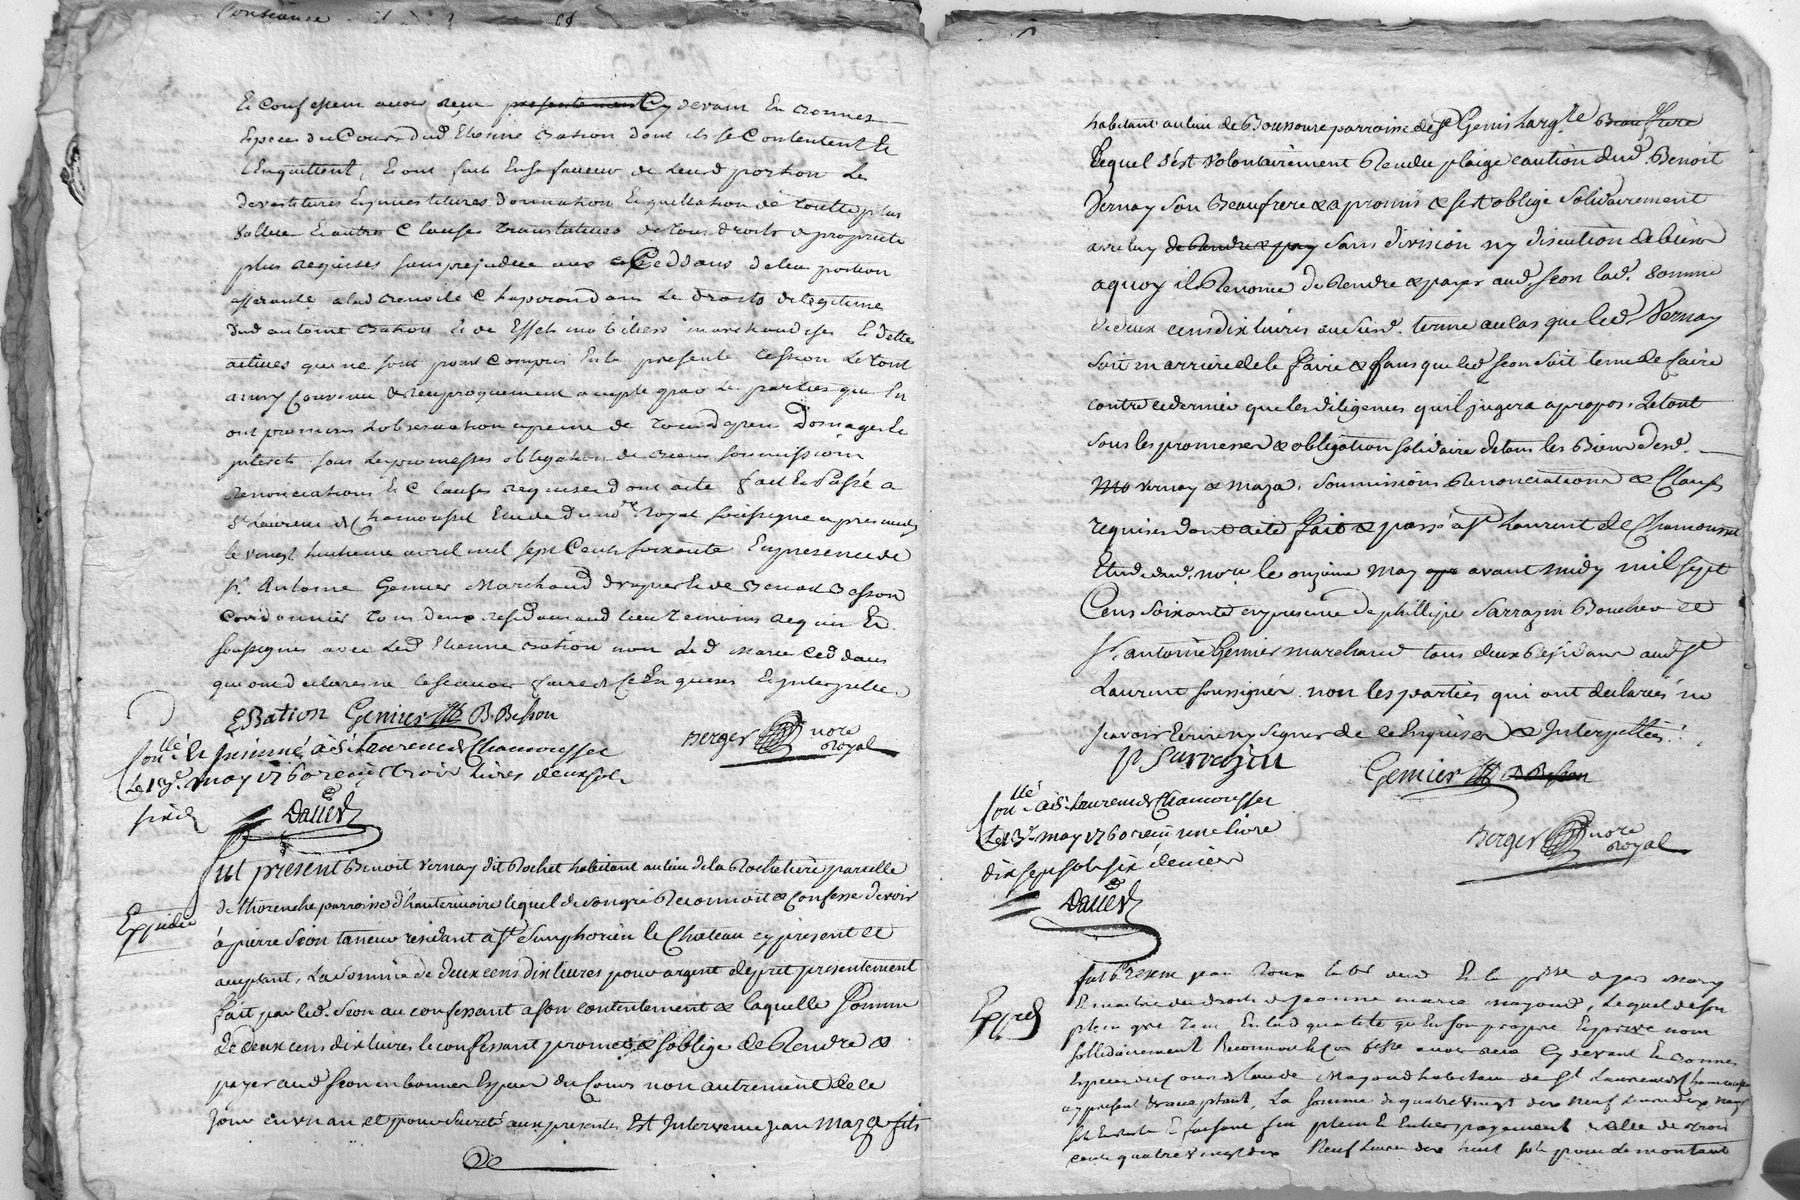 Et Confessent avoir reçu presentement Cy devant En bonnes
Especes du Cours dud Etienne Bation dont ils se Contentent Et
L'Enquittent, Et ont fait En sa faveur de leurd portion Les
devestitures Et investitures donnation Et quittation de toutte plus
vallue Et autres Clauses translatives de tous droits de propriété
plus requises sans prejudice aux Ceddans de leur portion
afferante a lad Benoite Chaperon dans Le droits de legitime
dud antoine Bation Et de Effets mobiliers marchandises Et dettes
actives qui ne sont point Compris En la presente Cession Le tout
ainsy Convenu & reciproquement accepté par Les parties qui En
ont promis L'observation a peine de tous depens Domages Et
interets sous Les promesses obligation de biens soumissions
Renonciations Et Clauses requises dont acte fait Et Passé a
St Laurent de Chamousset Etude du nore Royal soussigné apres midy
le vingt huitieme avril mil sept Cents soixante En presence de
sr. Antoine Genier Marchand drapier Et de Benoit Besson
Cordonnier tous deux residants aud lieu temoins requis Et
soussignés avec Led Etienne Bation non Led Marie Ceddans
qui ont declaré ne le sçavoir faire de ce Enquises Et interpellées
E Bation Genier B. Besson
Berger nore Royal
Conllé Et insinué à St Laurent de Chamousset
Le 13e may 1760 reçu trois livres deux sols
six d
Dalier
Fut présent Benoit Vernay dit Rochet habitant au lieu de la Rochetiere parcelle
de Thorenche parroisse d'hauterivoire lequel de son gré Reconnoit & Confesse devoir
Expediée
à pierre Séon taneur residant à St Simphorien le Chateau cy present et
acceptant, La Somme de deux cens dix livres pour argent de prêt presentement
fait par led. Seon au confessant a son contentement & laquelle Somme
De deux cens dix livres le confessant promet & s'oblige de Rendre &
payer aud Seon en bonnes Especes du Cours non autrement de ce
Jour en un an et pour Sureté aux presentes Est Intervenu jean Maza fils
De
habitant au lieu de Boussoure parroisse de St Genis Largtle Beaufrere
Lequel s'est volontairement Rendu plaige caution dud. Benoit
Vernay son Beaufrere & a promis & s'est obligé Solidairement
avec luy de Rendre & pay sans division ny discution de biens
a quoy il Renonce de Rendre & payer aud Seon lad. Somme
de deux cens dix livres au susd. terme au cas que led Vernay
soit in arriere de le faire & sans que led Seon soit tenu de faire
contre ce dernier que les diligences qu'il jugera a propos. Le tout
sous les promesses & obligation solidaire de tous les Biens desd.
Ma Vernay & Maza. soumissions Renonciations & Clauses
requises dont acte fait & passé à St Laurent de Chamousset
Etude dud. nore le onzieme May apr avant midy mil sept
Cens Soixante en presence de phillipe Sarrazin Boucher et
Sr. antoine Genier marchand tous deux residans aud St
Laurent soussignés non les parties qui ont declaré ne
sçavoir Ecrire ny signer de ce Enquises & Interpellées.
P Sarrazin Genier B Besson
Berger nore Royal
Conllé à St Laurent de Chamousset
Le 13e may 1760 reçu une livre
dix sept sols six deniers
Dalier
Fut Present jean
Expéd
Et maitre des droits de jeanne marie mazaud, Lequel de son
plein gré tant En lad qualité qu'En son propre Et privé nom
sollidairement Reconnoit Et Confesse avoir reçu Cy devant En bonnes
Especes du Cours de Mazaud habitant de St Laurent de Chamousset
cy present & acceptant, La somme de quatre vingt dix neuf livres
Et faisant fin plein Et Entier payement de Celle de trois
cents quatre vingt dix Neuf livres dix huit sols pour le montant